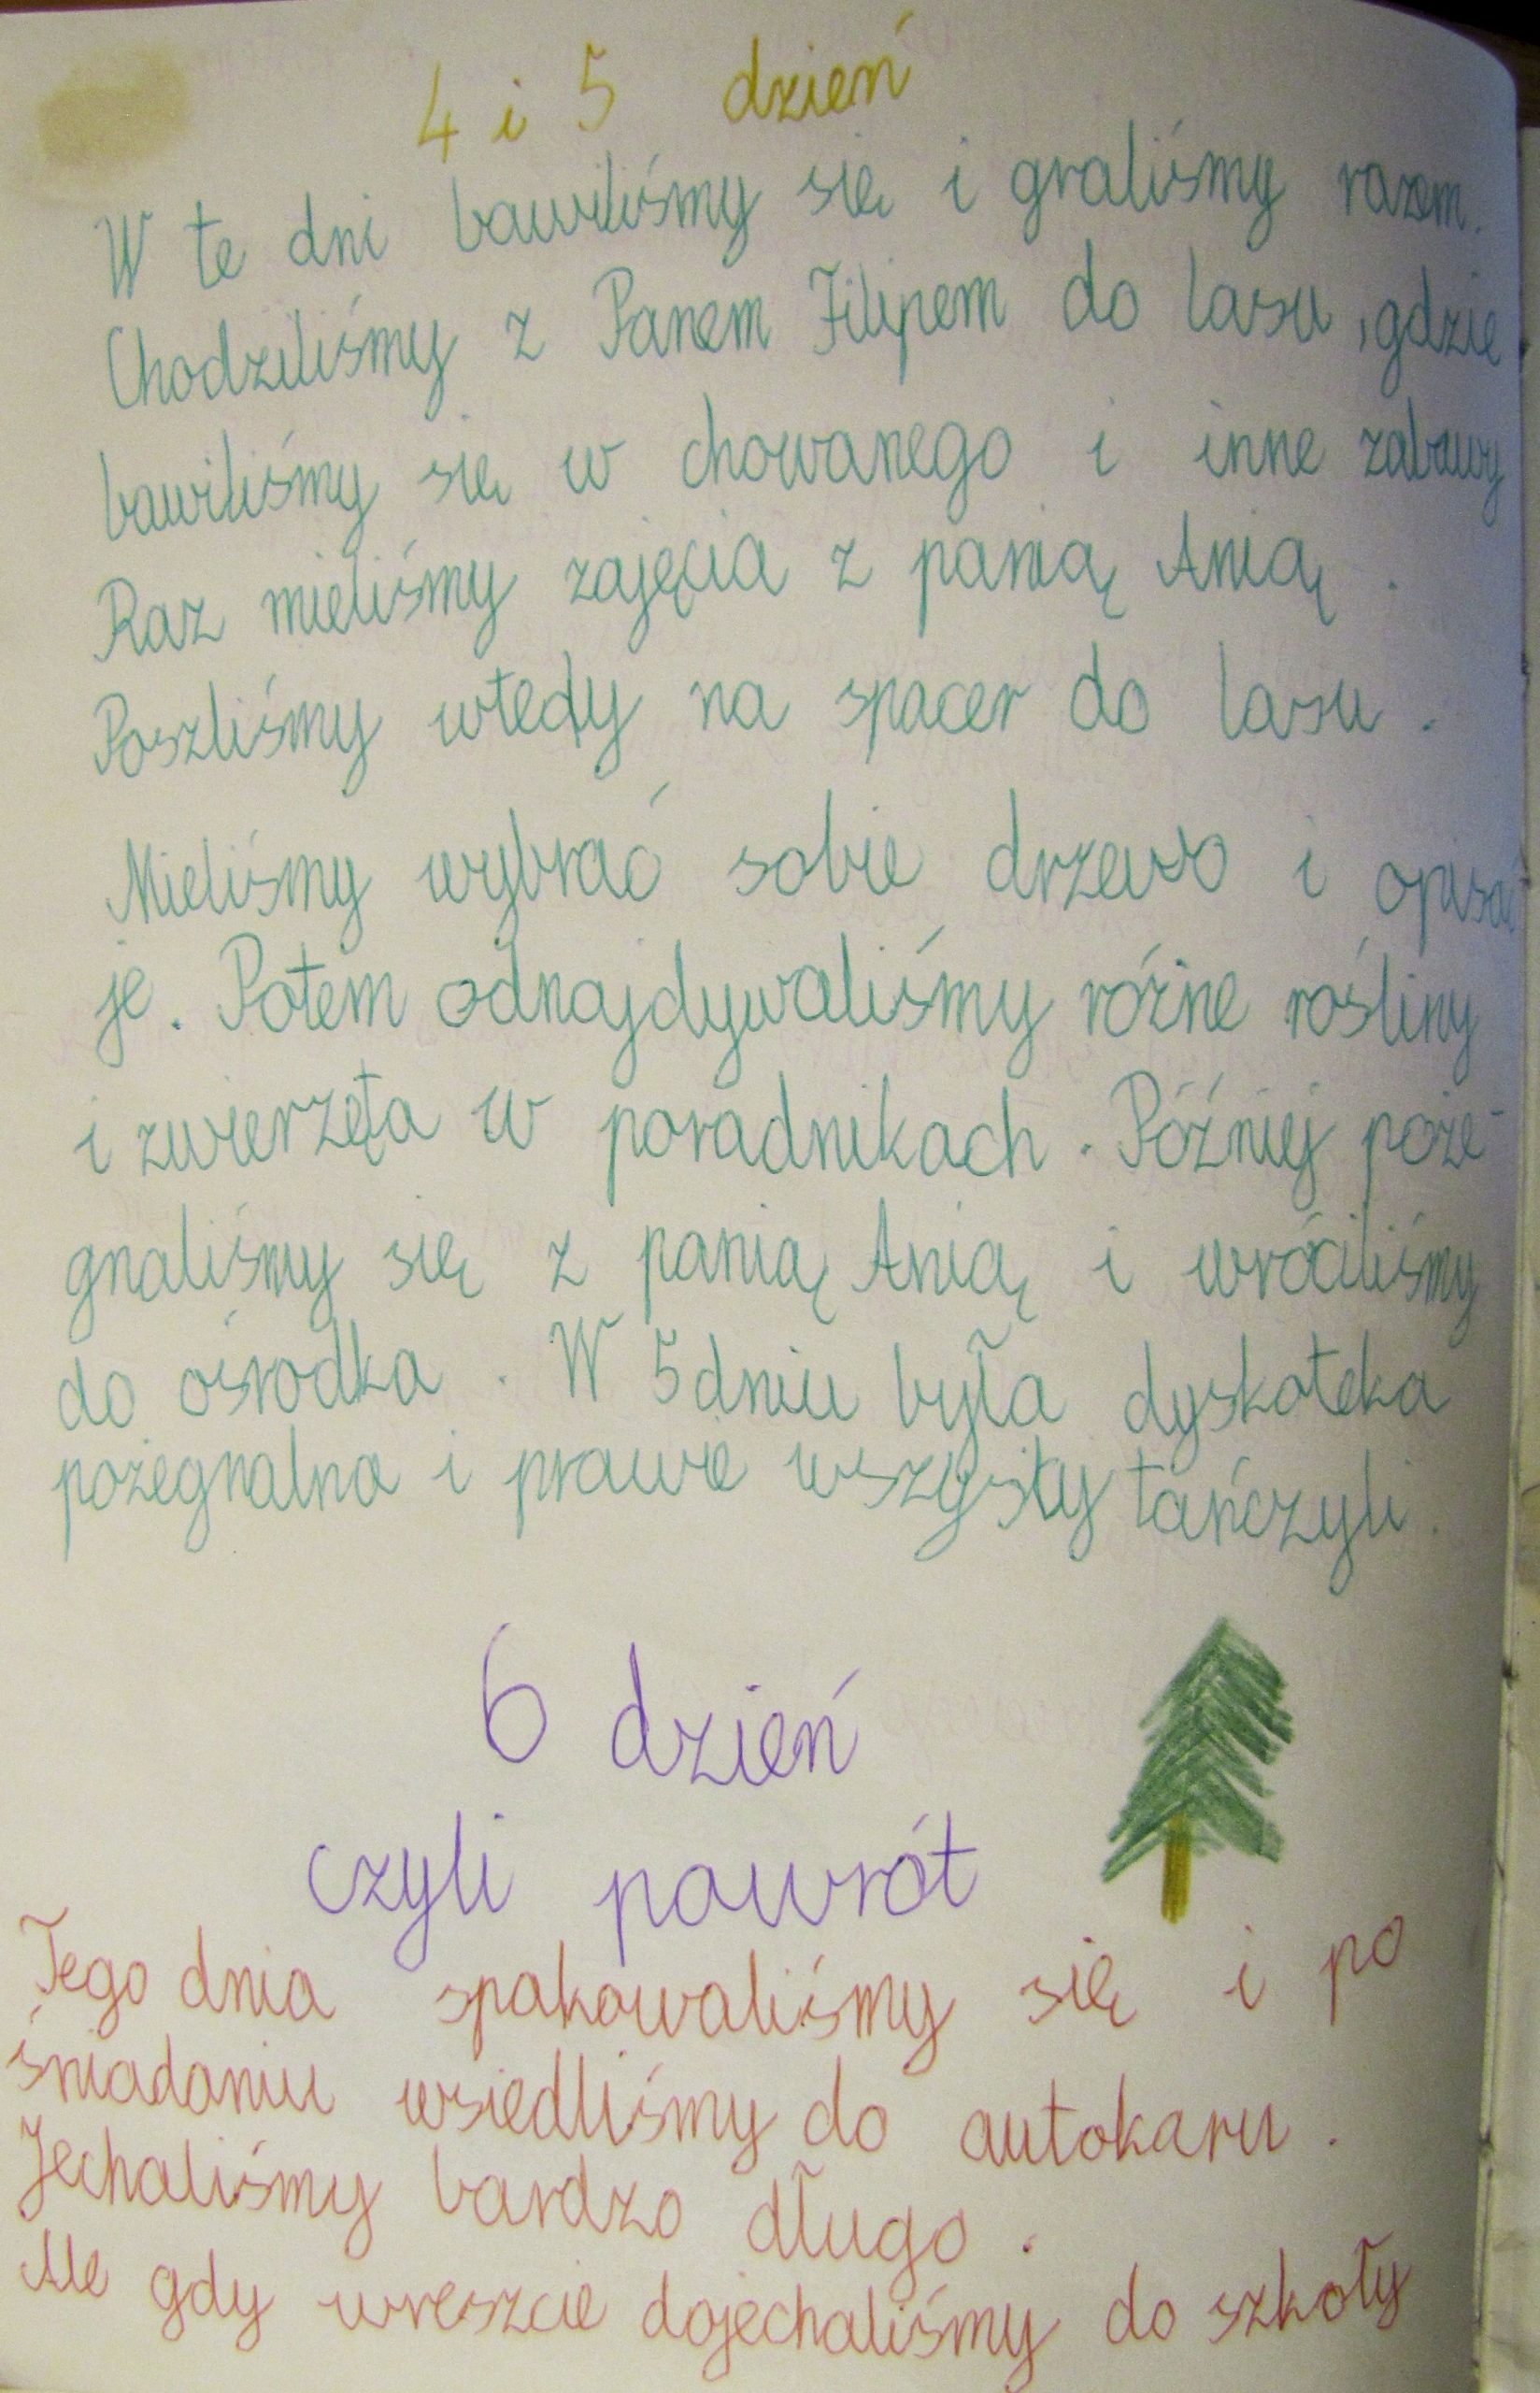 4 i 5 dzień
W te dni bawiliśmy się i graliśmy razem.
Chodziliśmy z Panem Filipem do lasu, gdzie
bawiliśmy się w chowanego i inne zabawy
Raz mieliśmy zajęcia z panią Anią.
Poszliśmy wtedy na spacer do lasu.
Mieliśmy wybrać sobie drzewo i opisać
je. Potem odnajdywaliśmy różne rośliny
i zwierzęta w poradnikach. Później poże-
gnaliśmy się z panią Anią i wróciliśmy
do ośrodka. W 5 dniu była dyskoteka
pożegnalna i prawie wszysty tańczyli.
6 dzień
czyli powrót
Tego dnia spakowaliśmy się i po
śniadaniu wsiedliśmy do autokaru.
Jechaliśmy bardzo długo.
Ale gdy wreszcie dojechaliśmy do szkoły